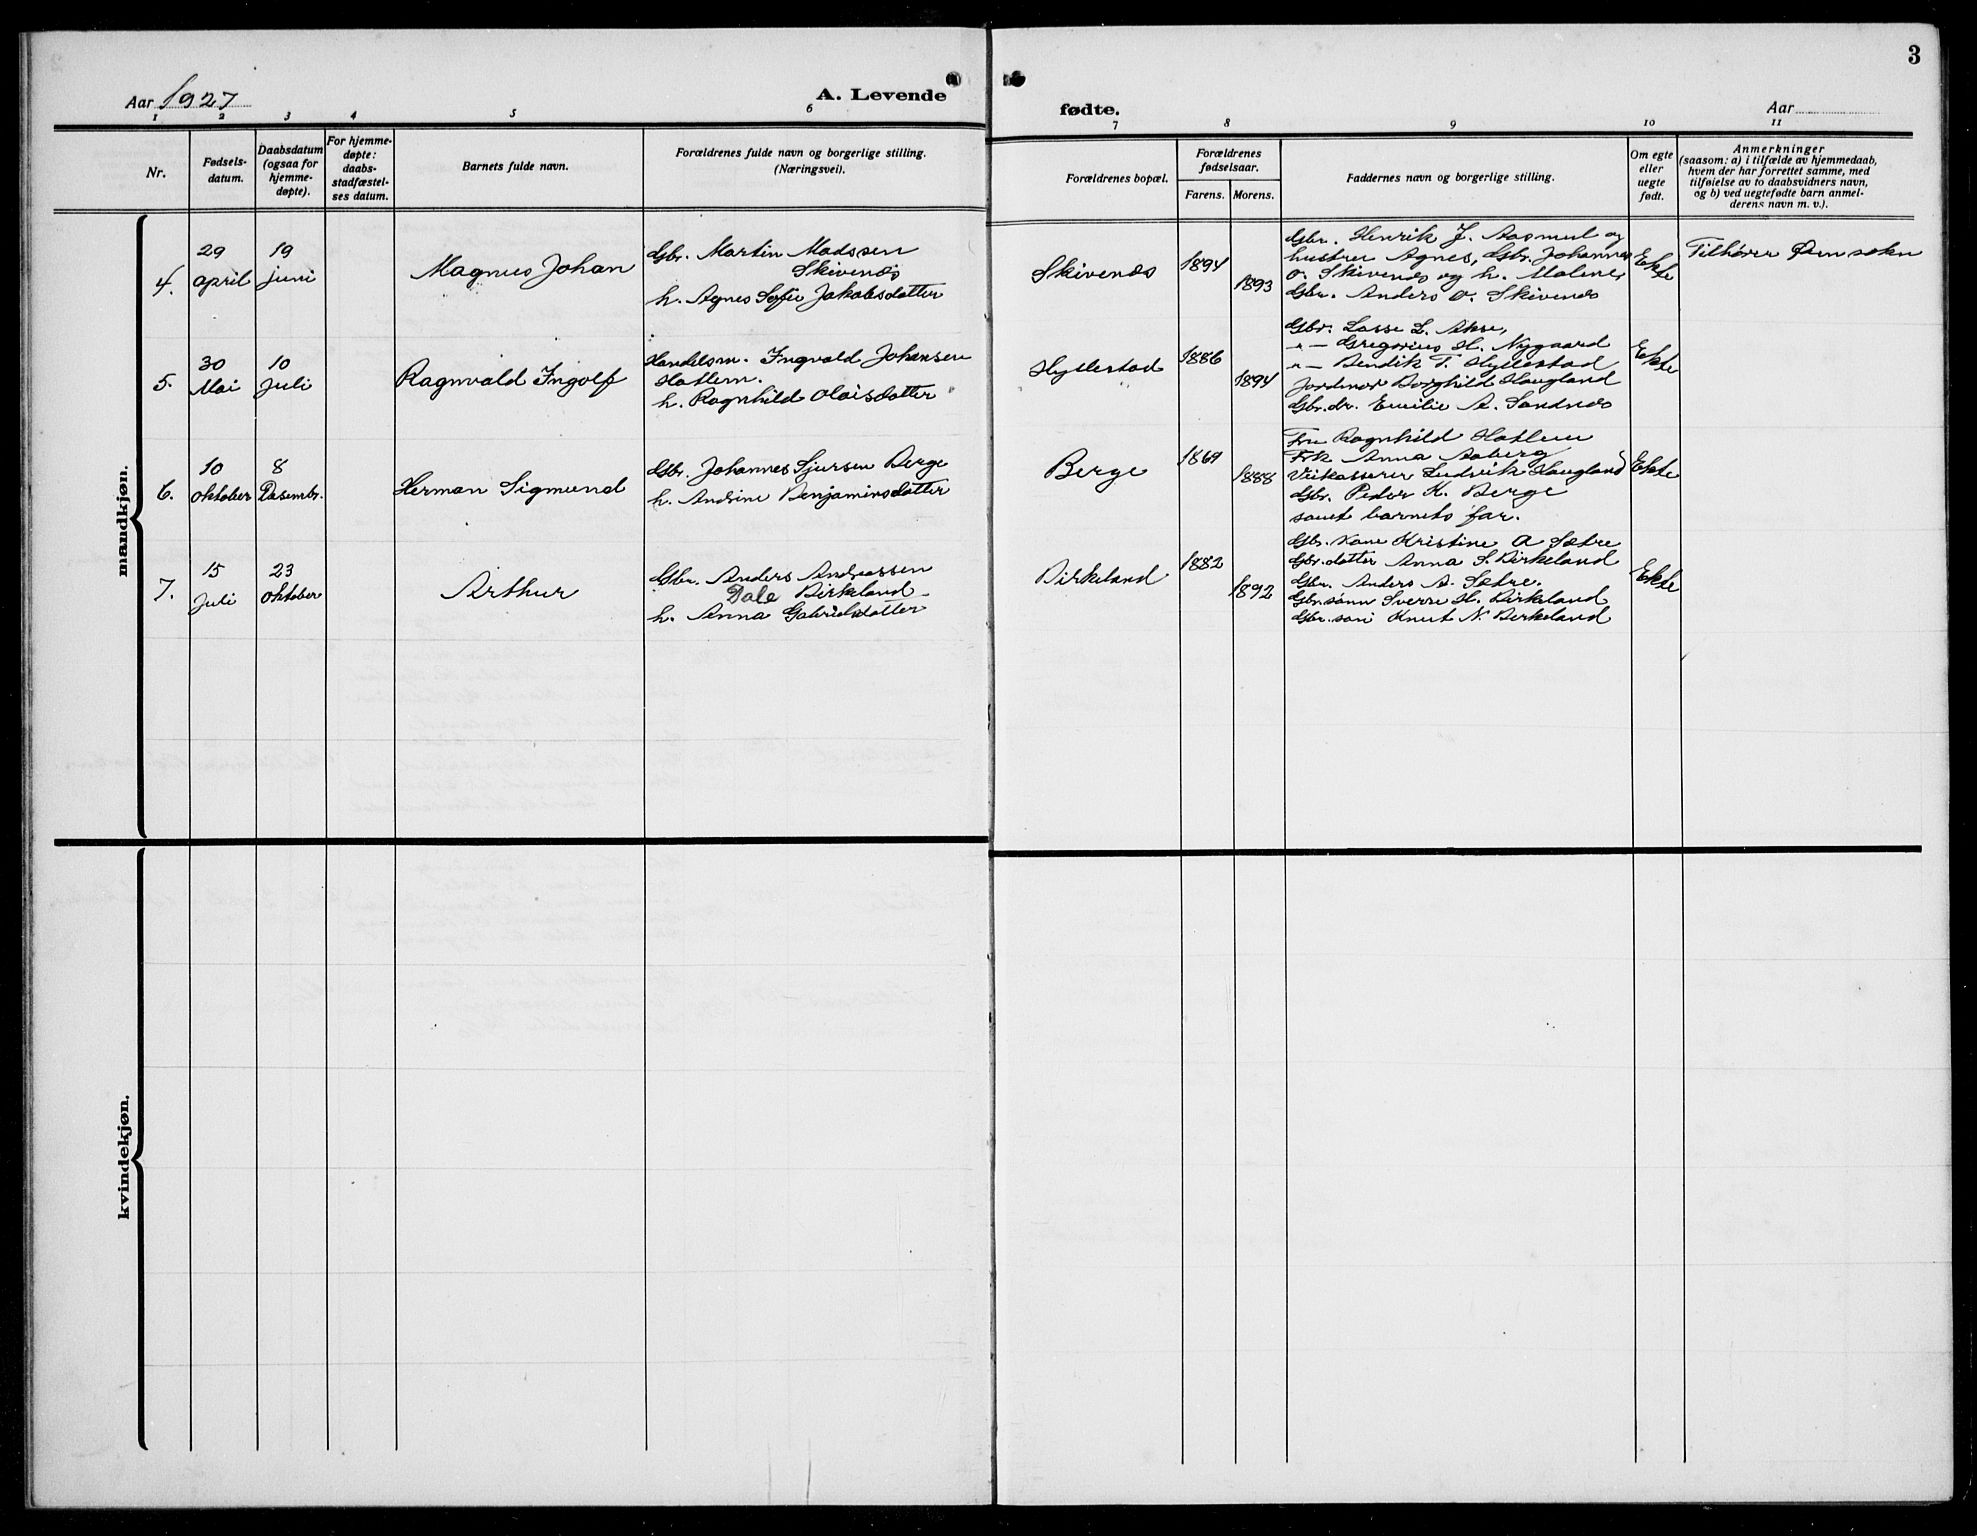 3
Aar 1927
A. Levende
fødte.
Aar
1 2 3 4 5 6 7 8 9 10 11
Nr.
Fødsels-
datum.
Daabsdatum
(ogsaa for
hjemme-
døpte).
For hjemme-
døpte:
daabs-
stadfæstel-
ses datum.
Barnets fulde navn.
Forældrenes fulde navn og borgerlige stilling.
(Næringsvei).
Forældrenes bopæl.
Forældrenes
fødselsaar.
Farens. Morens.
Faddernes navn og borgerlige stilling.
Om egte
eller
uegte
født.
Anmerkninger
(saasom: a) i tilfælde av hjemmedaab,
hvem der har forrettet samme, med
tilføielse av to daabsvidners navn,
og b) ved uegtefødte barn anmel-
derens navn m. v.).
mandkjøn.
4.
29
april
19
juni
Magnus Johan
Gbr. Martin Madssen
Skivenes
h. Agnes Sofie Jakobsdatter
Skivenes
1894
1893
Gbr. Henrik J. Aasmul og
hustru Agnes, Gbr. Johannes
O. Skivenes og h. Malene,
Gbr. Anders O. Skivenes
Ekte
Tilhører Øen sokn
5.
30
Mai
10
Juli
Ragnvald Ingolf
Handelsm. Ingvald Johansen
Hatlem.
h. Ragnhild Olaisdatter
Hyllestad
1886
1894
Gbr. Lasse L. Akse,
-"- Gregorius H. Nygaard
-"- Bendik T. Hyllestad
Jordmor Borghild Haugland
Gbr.dr. Emilie A. Sandnes
Ekte
6.
10
oktober
8
Desembr.
Herman Sigmund
Gbr. Johannes Sjursen Berge
h. Andrine Benjaminsdatter
Berge
1869
1888
Fru Ragnhild Hatlem
Frk Anna Aaberg
Ludvik Haugland
Gbr. Peder K. Berge
samt barnets far.
Ekte
7.
15
Juli
23
oktober
Arthur
Gbr. Anders Andreassen
Dale Birkeland
h. Anna Gabrielsdatter
Birkeland
1882
1892
Gbr. kone Kristine A Sætre
Gbr. datter Anna S. Birkeland
Gbr. Anders A. Sætre.
Gbr.sønn Sverre H. Birkeland
Gbr. søn Knut N. Birkeland
Ekte
kvindekjøn.